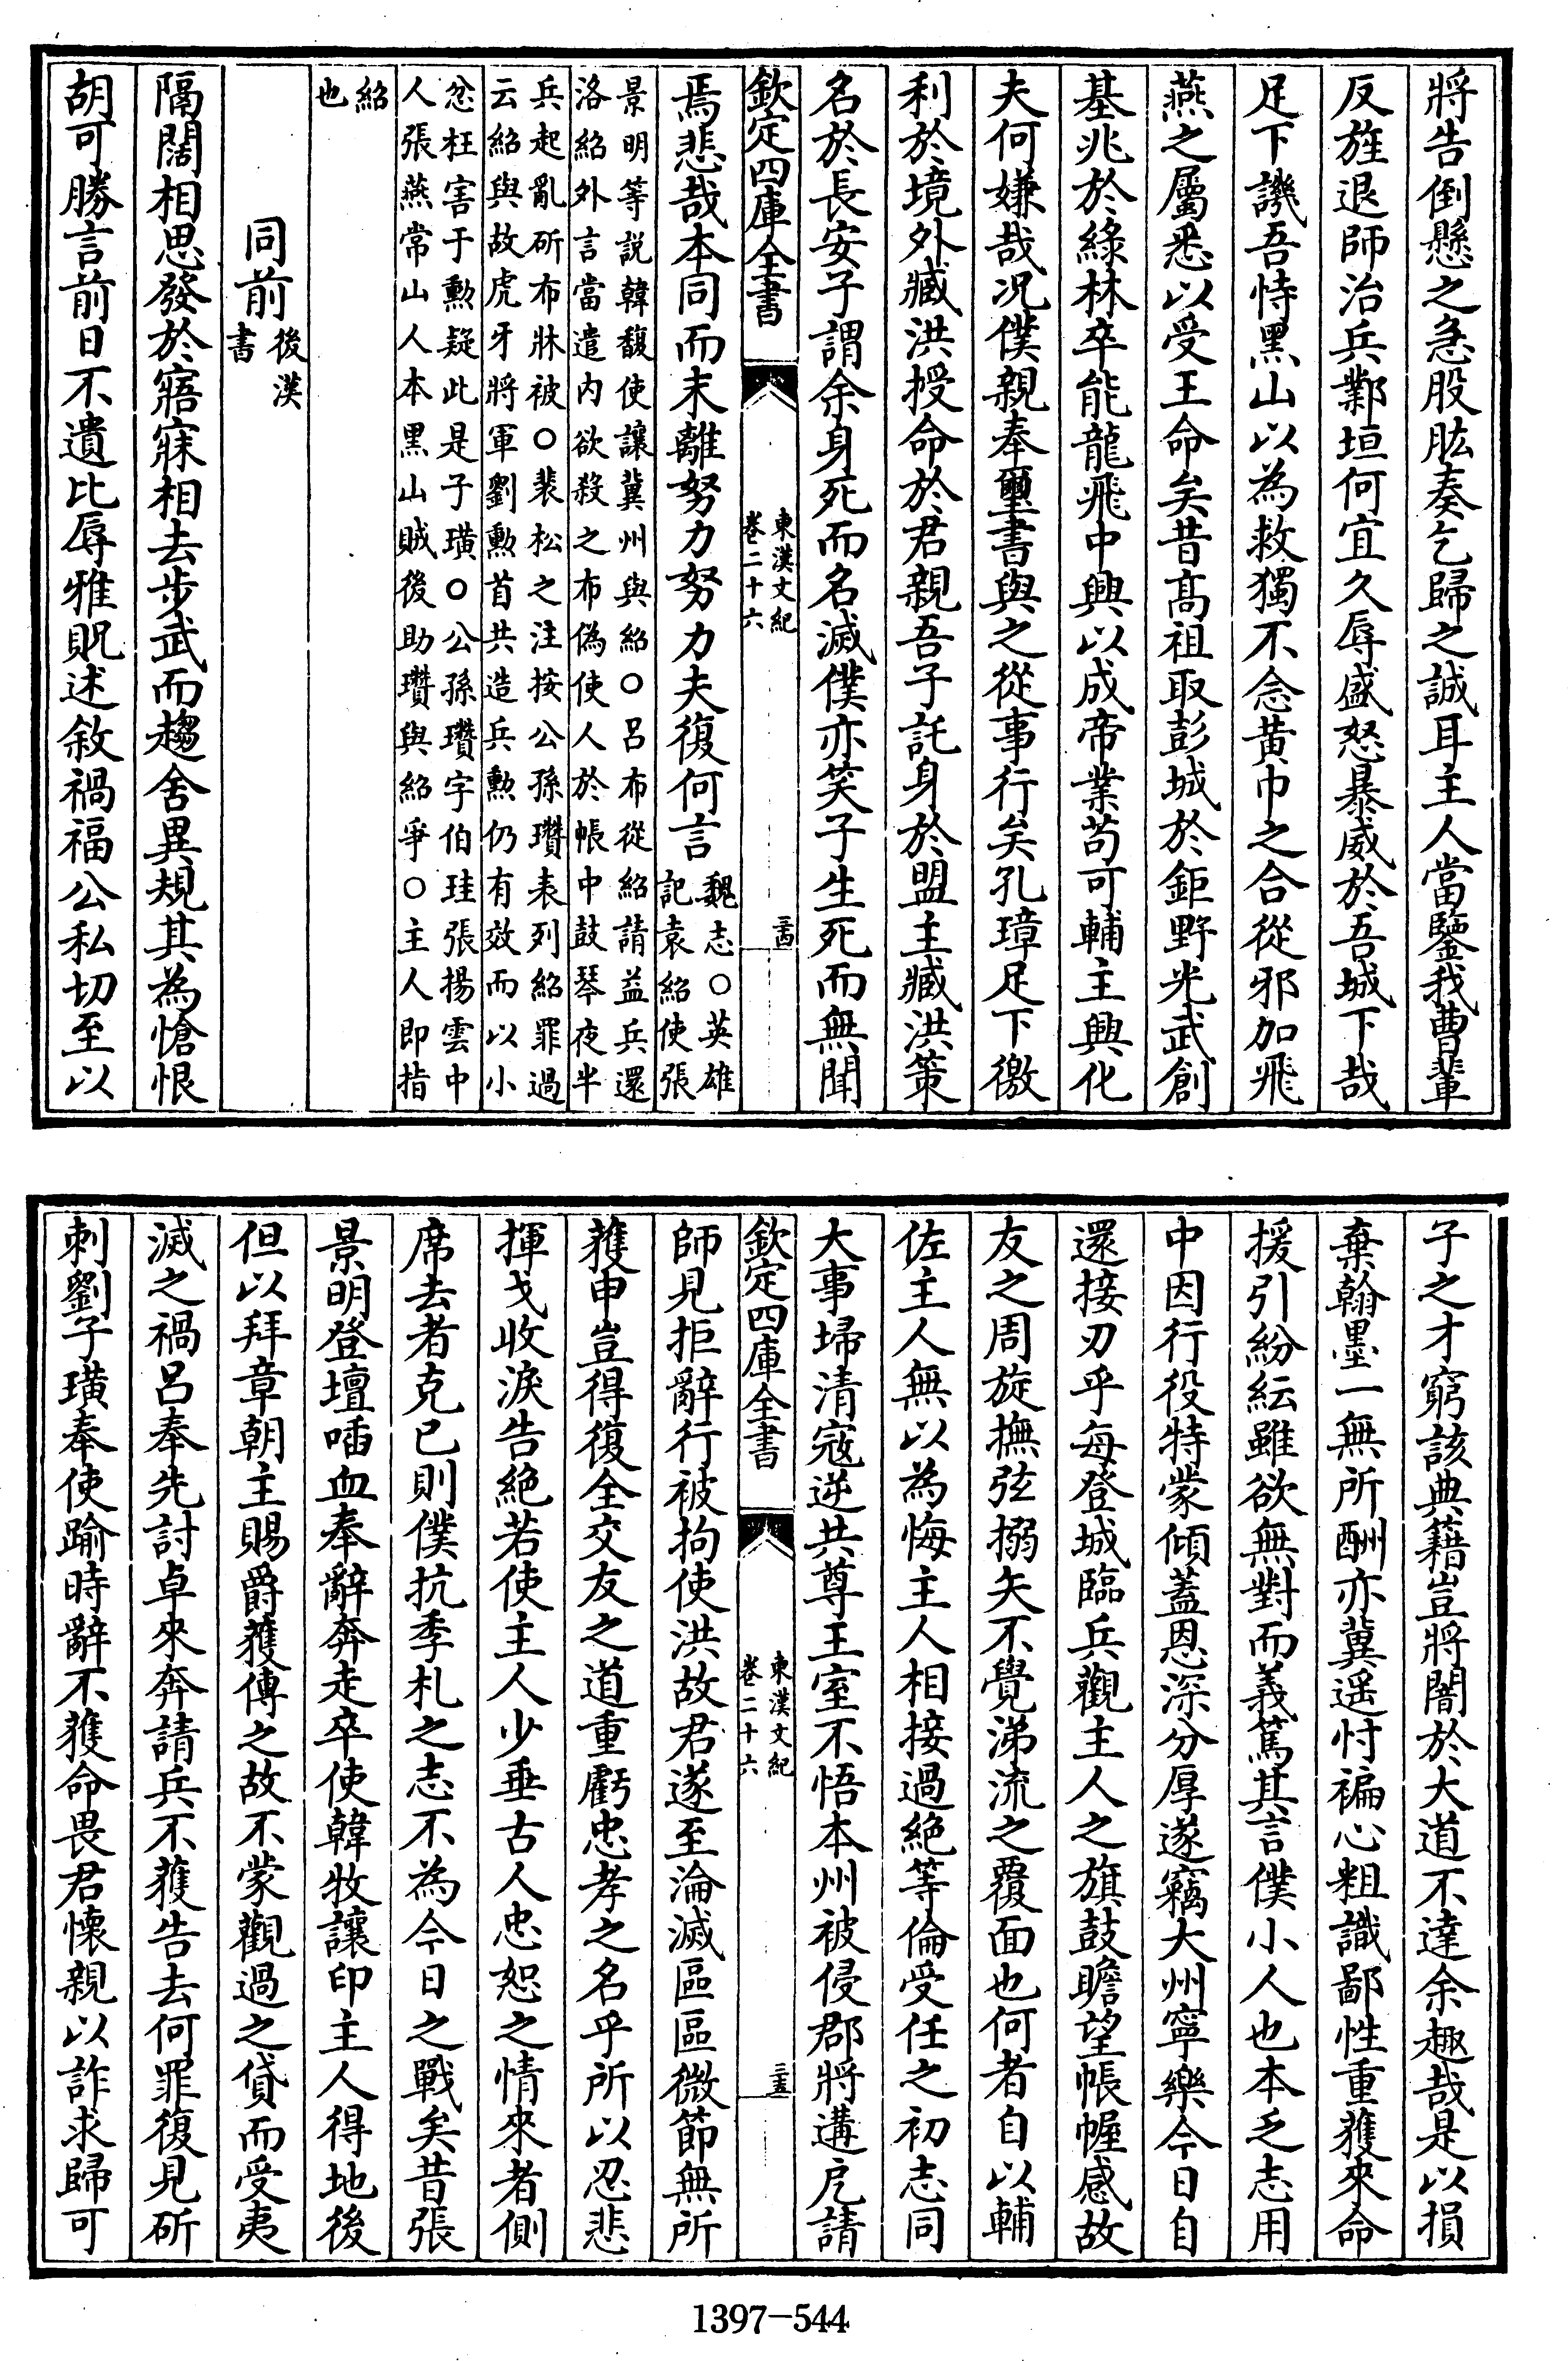 將告倒懸之急股肱奏乞歸之誠耳主人當鑒我曹輩
反旌退師治兵鄴垣何宜久辱盛怒暴威於吾城下哉
足下譏吾恃黑山以為救獨不念黄巾之合從邪加飛
燕之屬悉以受王命矣昔髙祖取彭城於鉅野光武創
基兆於綠林卒能龍飛中興以成帝業苟可輔主興化
夫何嫌哉况僕親奉璽書與之從事行矣孔璋足下徼
利於境外臧洪授命於君親吾子託身於盟主臧洪策
名於長安子謂余身死而名滅僕亦笑子生死而無聞
欽定四庫全書
東漢文紀
卷二十六
三四
焉悲哉本同而末離努力努力夫復何言
魏志○英雄
記袁紹使張
景明等説韓馥使讓冀州與紹○呂布從紹請益兵還
洛紹外言當遣内欲殺之布偽使人於帳中鼓琴夜半
兵起亂斫布牀被○裴松之注按公孫瓚表列紹罪過
云紹與故虎牙將軍劉勲首共造兵勲仍有效而以小
忿枉害于勲疑此是子璜○公孫瓚字伯珪張揚雲中
人張燕常山人本黑山賊後助瓚與紹爭○主人即指
紹
也
同前
後漢
書
隔闊相思發於寤寐相去步武而趨舍異規其為愴恨
胡可勝言前日不遺比辱雅貺述敘禍福公私切至以
子之才窮該典籍豈將闇於大道不達余趣哉是以損
棄翰墨一無所酬亦冀遥忖褊心粗識鄙性重獲來命
援引紛紜雖欲無對而義篤其言僕小人也本乏志用
中因行役特蒙傾蓋恩深分厚遂竊大州寧樂今日自
還接刃乎每登城臨兵觀主人之旗鼓瞻望帳幄感故
友之周旋撫弦搦矢不覺涕流之覆面也何者自以輔
佐主人無以為悔主人相接過絶等倫受任之初志同
大事埽清寇逆共尊王室不悟本州被侵郡將遘戹請
欽定四庫全書
東漢文紀
卷二十六
三五
師見拒辭行被拘使洪故君遂至淪滅區區微節無所
獲申豈得復全交友之道重虧忠孝之名乎所以忍悲
揮戈收淚告絶若使主人少垂古人忠恕之情來者側
席去者克已則僕抗季札之志不為今日之戰矣昔張
景明登壇喢血奉辭奔走卒使韓牧讓印主人得地後
但以拜章朝主賜爵獲傳之故不蒙觀過之貸而受夷
滅之禍呂奉先討卓來奔請兵不獲告去何罪復見斫
刺劉子璜奉使踰時辭不獲命畏君懷親以詐求歸可
1397-544